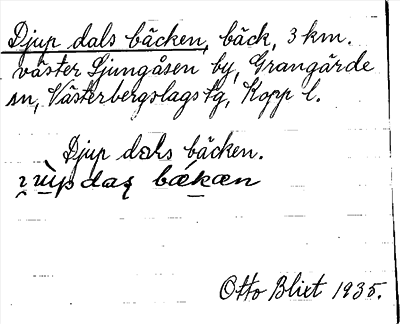 Djup dals bäcken, bäck, 3 km.
väster Ljungåsen by, Grangärde
sn, Västerbergslags tg, Kopp l.
Djup dals bäcken.
Otto Blixt 1935.